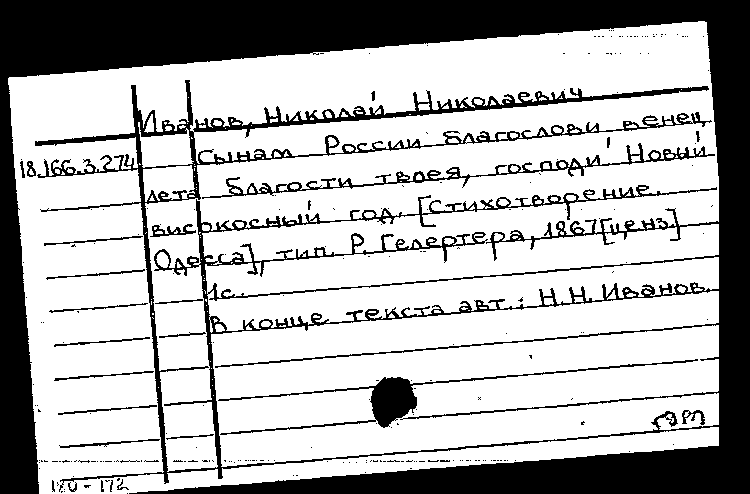 Иванов, Николай Николаевич
18.166.3.274 Сынам России благослови венец
лета благости твоея, господи! Новый
високосный год. [Стихотворение.
Одесса], тип. Р. Гелертера, 1867[ценз]
1с.
В конце текста авт.: Н.Н. Иванов.
180-172